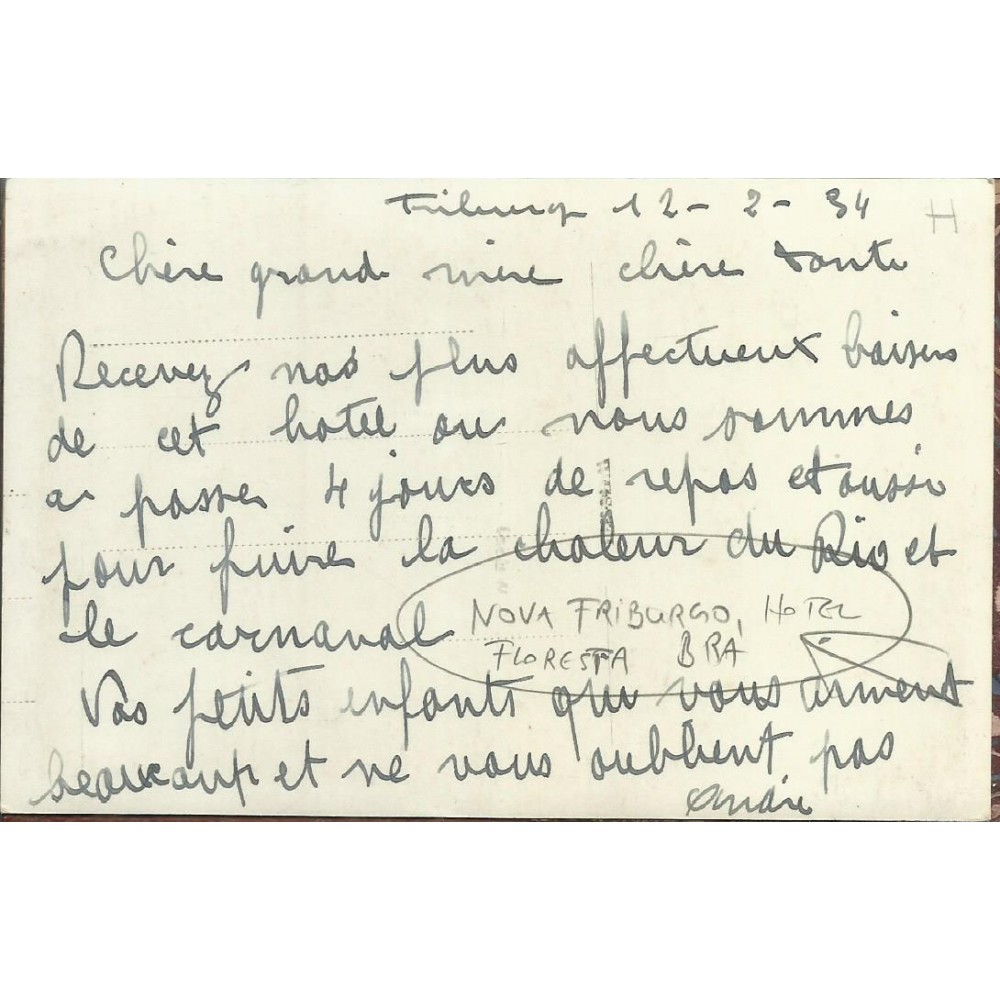 Friburgo 12-2-34
H
Chère grand mère chère tante
Recevez nos plus affectueux baisers
de cet hotel ou nous sommes
a passer 4 jours de repos et aussi
pour fuire la chaleur du Rio et
le carnaval
NOVA FRIBURGO, HOTEL
FLORESTA BRA
Vos petits enfants qui vous aiment
beaucoup et ne vous oublient pas
André